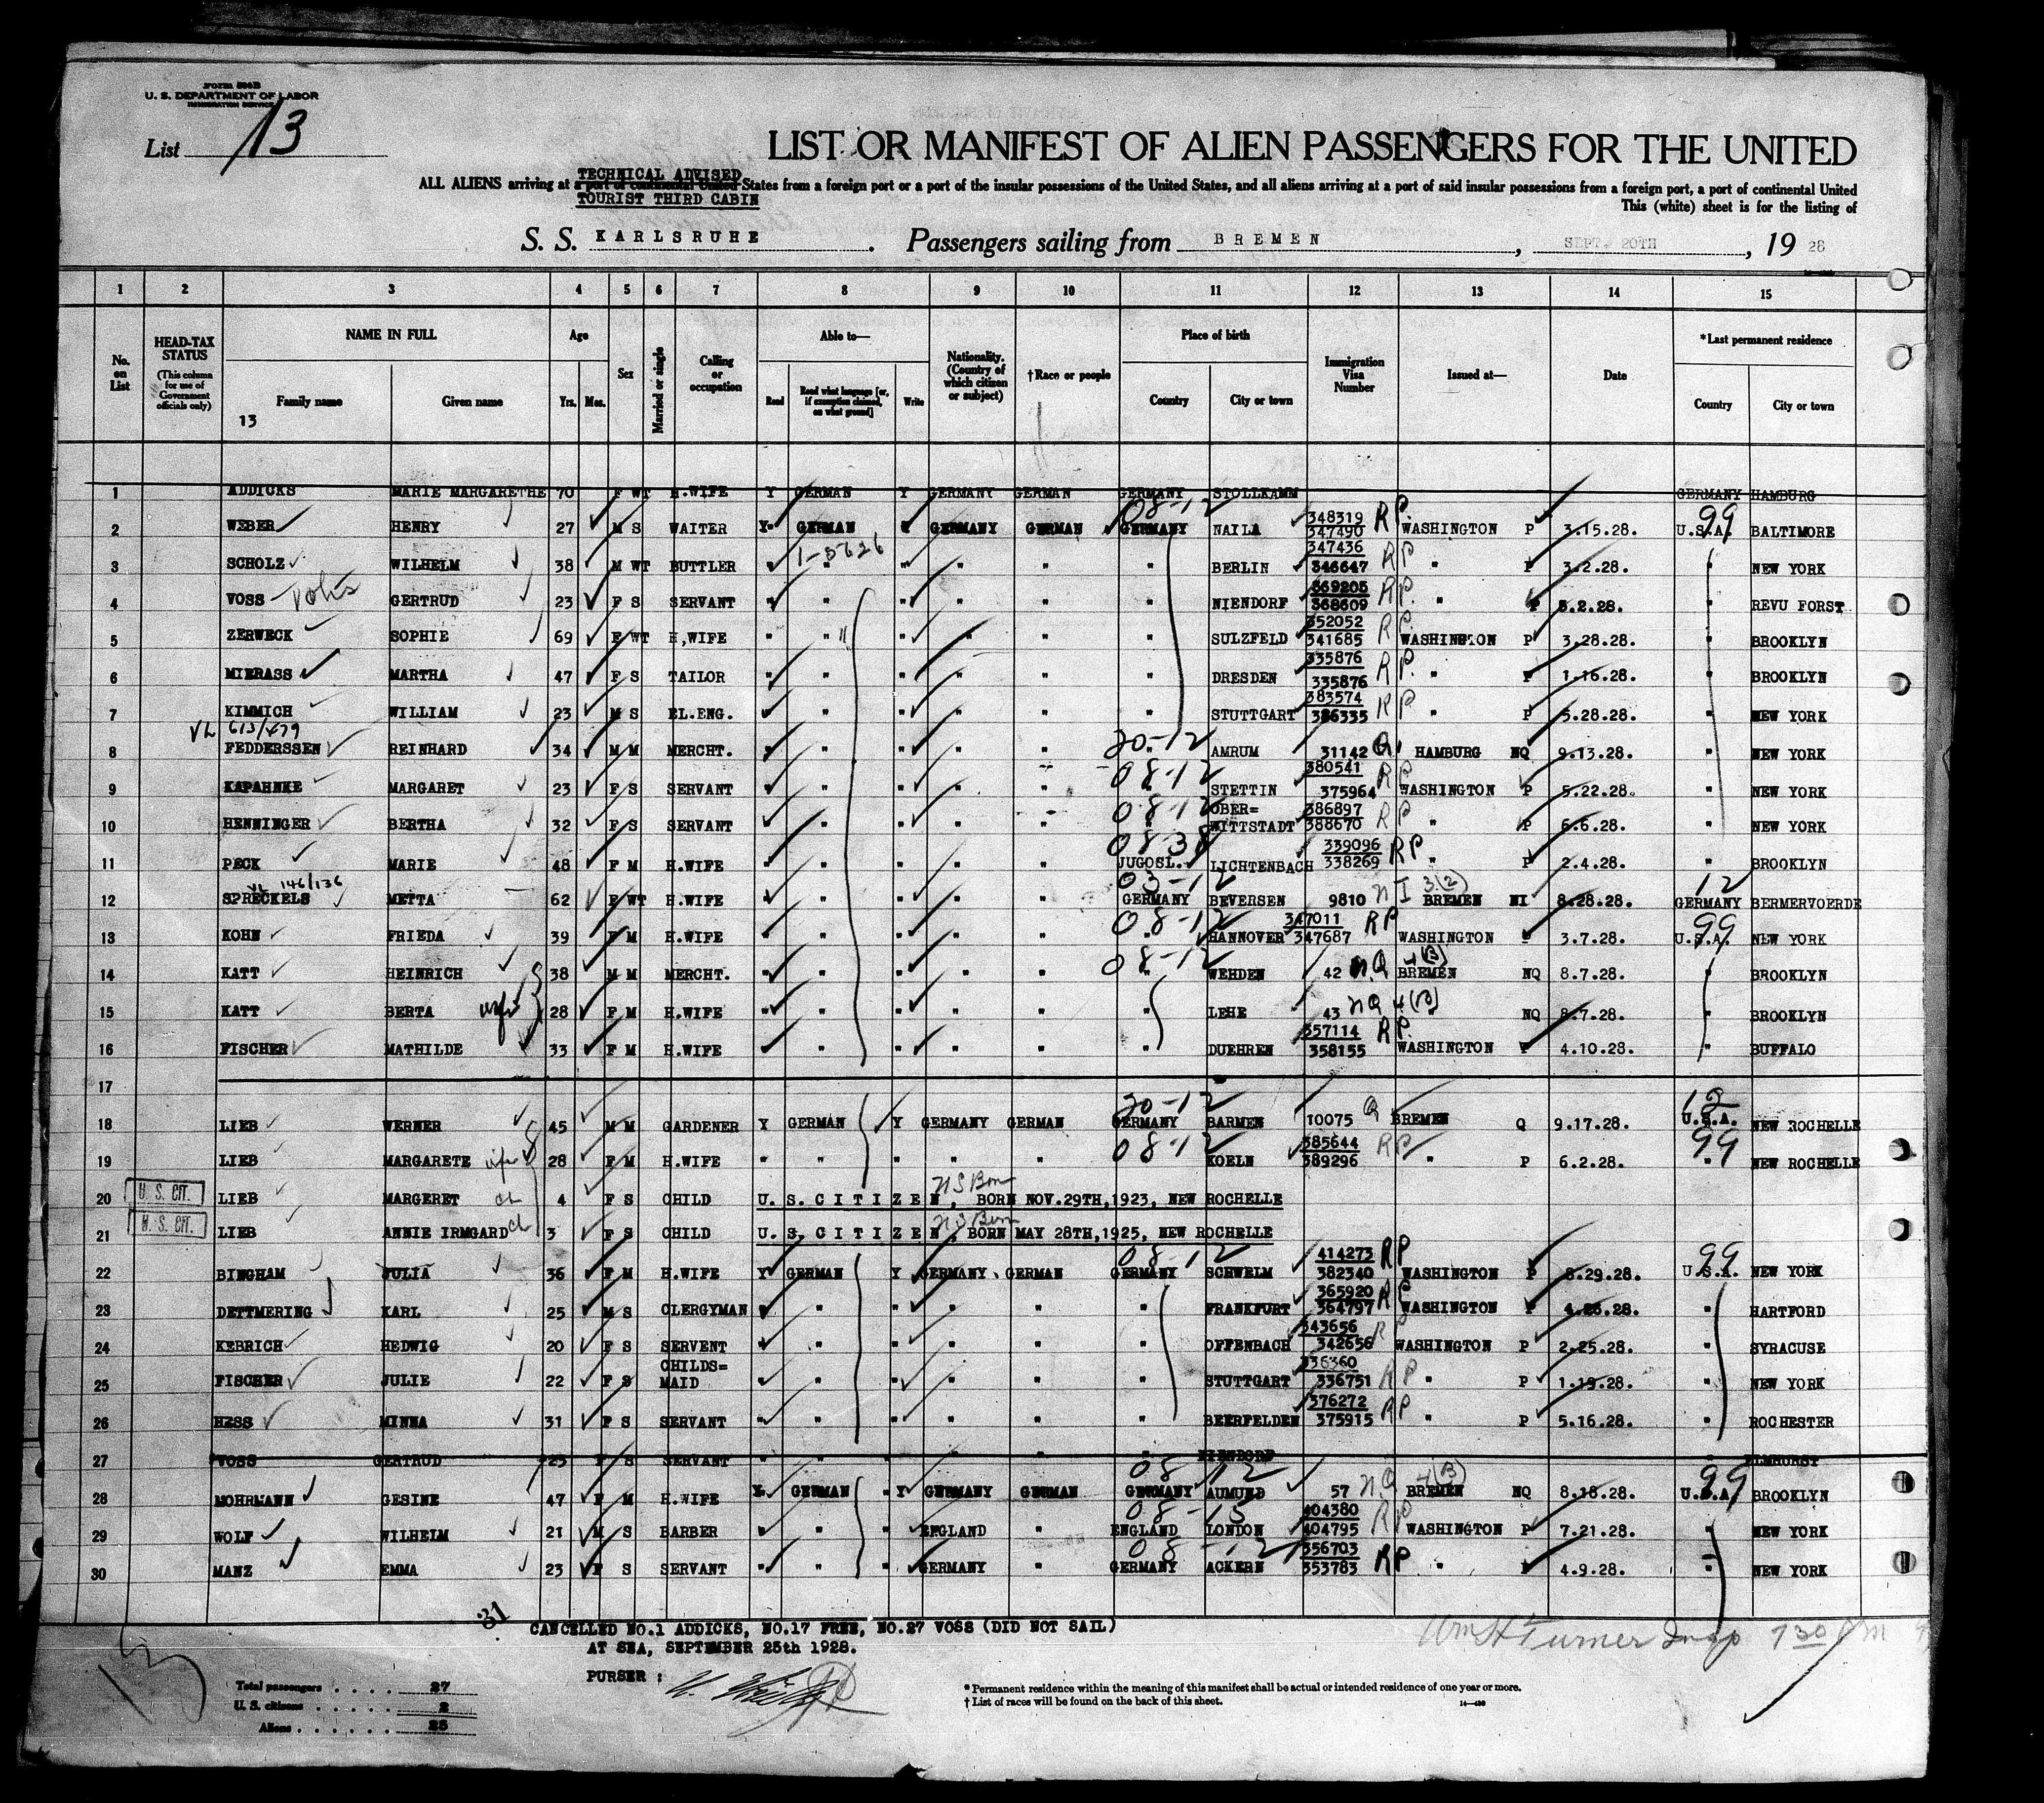 Form 500B
U. S. DEPARTMENT OF LABOR
IMMIGRATION SERVICE
List 13
LIST OR MANIFEST OF ALIEN PASSENGERS FOR THE UNITED
TECHNICAL ADVISED
ALL ALIENS arriving at a port of continental United States from a foreign port or a port of the insular possessions of the United States, and all aliens arriving at a port of said insular possessions from a foreign port, a port of continental United
TOURIST THIRD CABIN
This (white) sheet is for the listing of
S. S. KARLSRUHE . Passengers sailing from BREMEN , SEPT. 20TH , 19 28
1 2 3 4 5 6 7 8 9 10 11 12 13 14 15
No. on List
HEAD-TAX STATUS (This column for use of Government officials only)
NAME IN FULL
Family name Given name
13
Age
Yrs. Mos.
Sex
Married or single
Calling or occupation
Able to—
Read Read what language [or, if exemption claimed, on what ground] Write
Nationality. (Country of which citizen or subject)
†Race or people
Place of birth
Country City or town
Immigration Visa Number
Issued at—
Date
*Last permanent residence
Country City or town
1 ADDICKS MARIE MARGARETHE 70 F WT H.WIFE Y GERMAN Y GERMANY GERMAN GERMANY STOLLHAMM GERMANY HAMBURG
08-12 348319 RP. 99
2 WEBER HENRY 27 M S WAITER Y GERMAN Y GERMANY GERMAN GERMANY NAILA 347490 WASHINGTON P 3.15.28. U.S.A. BALTIMORE
1-5626 347436 RP
3 SCHOLZ WILHELM 38 M WT BUTTLER " " " " " " BERLIN 346647 " P 3.2.28. " NEW YORK
369205 RP.
4 VOSS GERTRUD 23 F S SERVANT " " " " " " NIENDORF 368609 " P 5.2.28. " REVU FORST
352052 RP.
5 ZERWECK SOPHIE 69 F WT H,WIFE " " " " " " SULZFELD 341685 WASHINGTON P 3.28.28. " BROOKLYN
335876 RP.
6 MIERASS MARTHA 47 F S TAILOR " " " " " " DRESDEN 335876 " P 1.16.28. " BROOKLYN
383574 RP
7 KIMMICH WILLIAM 23 M S EL.ENG. " " " " " " STUTTGART 386335 " P 5.28.28. " NEW YORK
VL 613/479 20-12
8 FEDDERSSEN REINHARD 34 M M MERCHT. " " " " " " AMRUM 31142 Q. HAMBURG NQ 9.13.28. " NEW YORK
08-12 380541 RP
9 KAPAHNKE MARGARET 23 F S SERVANT " " " " " STETTIN 375964 WASHINGTON P 5.22.28. " NEW YORK
08-12 OBER= 386897 RP
10 HENNINGER BERTHA 32 F S SERVANT " " " " " " WITTSTADT 388670 " P 6.6.28. " NEW YORK
08 38 339096 RP
11 PECK MARIE 48 F M H.WIFE " " " " " JUGOSL. LICHTENBACH 338269 " P 2.4.28. " BROOKLYN
VL 146/136 03-12 NI 3(2) 12
12 SPRECKELS METTA 62 F WT H.WIFE " " " " " GERMANY BEVERSEN 9810 BREMEN NI 8.28.28. GERMANY BERMERVOERDE
08-12 347011 RP 99
13 KOHN FRIEDA 39 F M H.WIFE " " " " " " HANNOVER 347687 WASHINGTON P 3.7.28. U.S.A. NEW YORK
08-12 NQ 4(B)
14 KATT HEINRICH 38 M M MERCHT. " " " " " " WEHDEN 42 BREMEN NQ 8.7.28. " BROOKLYN
wife NQ 4(B)
15 KATT BERTA 28 F M H.WIFE " " " " " " LEHE 43 " NQ 8.7.28. " BROOKLYN
357114 RP.
16 FISCHER MATHILDE 33 F M H.WIFE " " " " " " DUEHREN 358155 WASHINGTON P 4.10.28. " BUFFALO
17
20-12 Q 12
18 LIEB WERNER 45 M M GARDENER Y GERMAN Y GERMANY GERMAN GERMANY BARMEN 10075 BREMEN Q 9.17.28. U.S.A. NEW ROCHELLE
08-12 385644 RP 99
19 LIEB MARGARETE wife 28 F M H.WIFE " " " " " " KOELN 389296 " P 6.2.28. " NEW ROCHELLE
U. S. CIT. US Born
20 LIEB MARGERET ch 4 F S CHILD U. S. CITIZEN, BORN NOV.29TH,1923, NEW ROCHELLE
U. S. CIT. US Born
21 LIEB ANNIE IRMGARD ch 3 F S CHILD U. S. CITIZEN, BORN MAY 28TH,1925, NEW ROCHELLE
08-12 414273 RP 99
22 BINGHAM JULIA 36 F M H.WIFE Y GERMAN Y GERMANY GERMAN GERMANY SCHWELM 382340 WASHINGTON P 8.29.28. U.S.A. NEW YORK
365920 RP
23 DETTMERING KARL 25 M S CLERGYMAN " " " " " " FRANKFURT 364797 WASHINGTON P 4.26.28. " HARTFORD
343656 RP
24 KEBRICH HEDWIG 20 F S SERVENT " " " " " " OFFENBACH 342656 WASHINGTON P 2.25.28. " SYRACUSE
CHILDS= 336360
25 FISCHER JULIE 22 F S MAID " " " " " " STUTTGART 336751 RP " P 1.19.28. " NEW YORK
376272 RP
26 HESS MINNA 31 F S SERVANT " " " " " " BEERFELDEN 375915 " P 5.16.28. " ROCHESTER
27 VOSS GERTRUD 23 F S SERVANT " " " " " " NIENDORF " ELMHURST
08 12 NQ 4(B) 99
28 MOHRMANN GESINE 47 F M H.WIFE Y GERMAN Y GERMANY GERMAN GERMANY AUMUND 57 BREMEN NQ 8.18.28. U.S.A. BROOKLYN
08-15 404380 RP
29 WOLF WILHELM 21 M S BARBER " " " ENGLAND " ENGLAND LONDON 404795 WASHINGTON P 7.21.28. " NEW YORK
08-12 356703 RP
30 MANZ EMMA 23 F S SERVANT " " " GERMANY " GERMANY ACKERN 353783 " P 4.9.28. " NEW YORK
31
CANCELLED NO.1 ADDICKS, NO.17 FREE, NO.27 VOSS (DID NOT SAIL)
AT SEA, SEPTEMBER 25th 1928.
Wm H Turner Insp 7 30 PM
PURSER :
13
Total passengers . . . . 27
U. S. citizens . . . . . 2
Aliens . . . . . . 25
* Permanent residence within the meaning of this manifest shall be actual or intended residence of one year or more.
† List of races will be found on the back of this sheet.